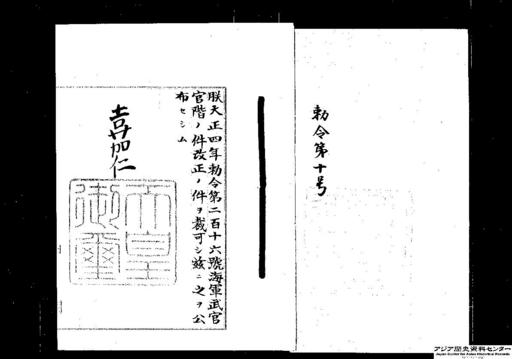 勅令第十号
朕大正四年勅令第二百十六號海軍武官
官階ノ件改正ノ件ヲ裁可シ玆ニ之ヲ公
布セシム
嘉仁
天皇
御璽
アジア歴史資料センター
Japan Center for Asian Historical Records